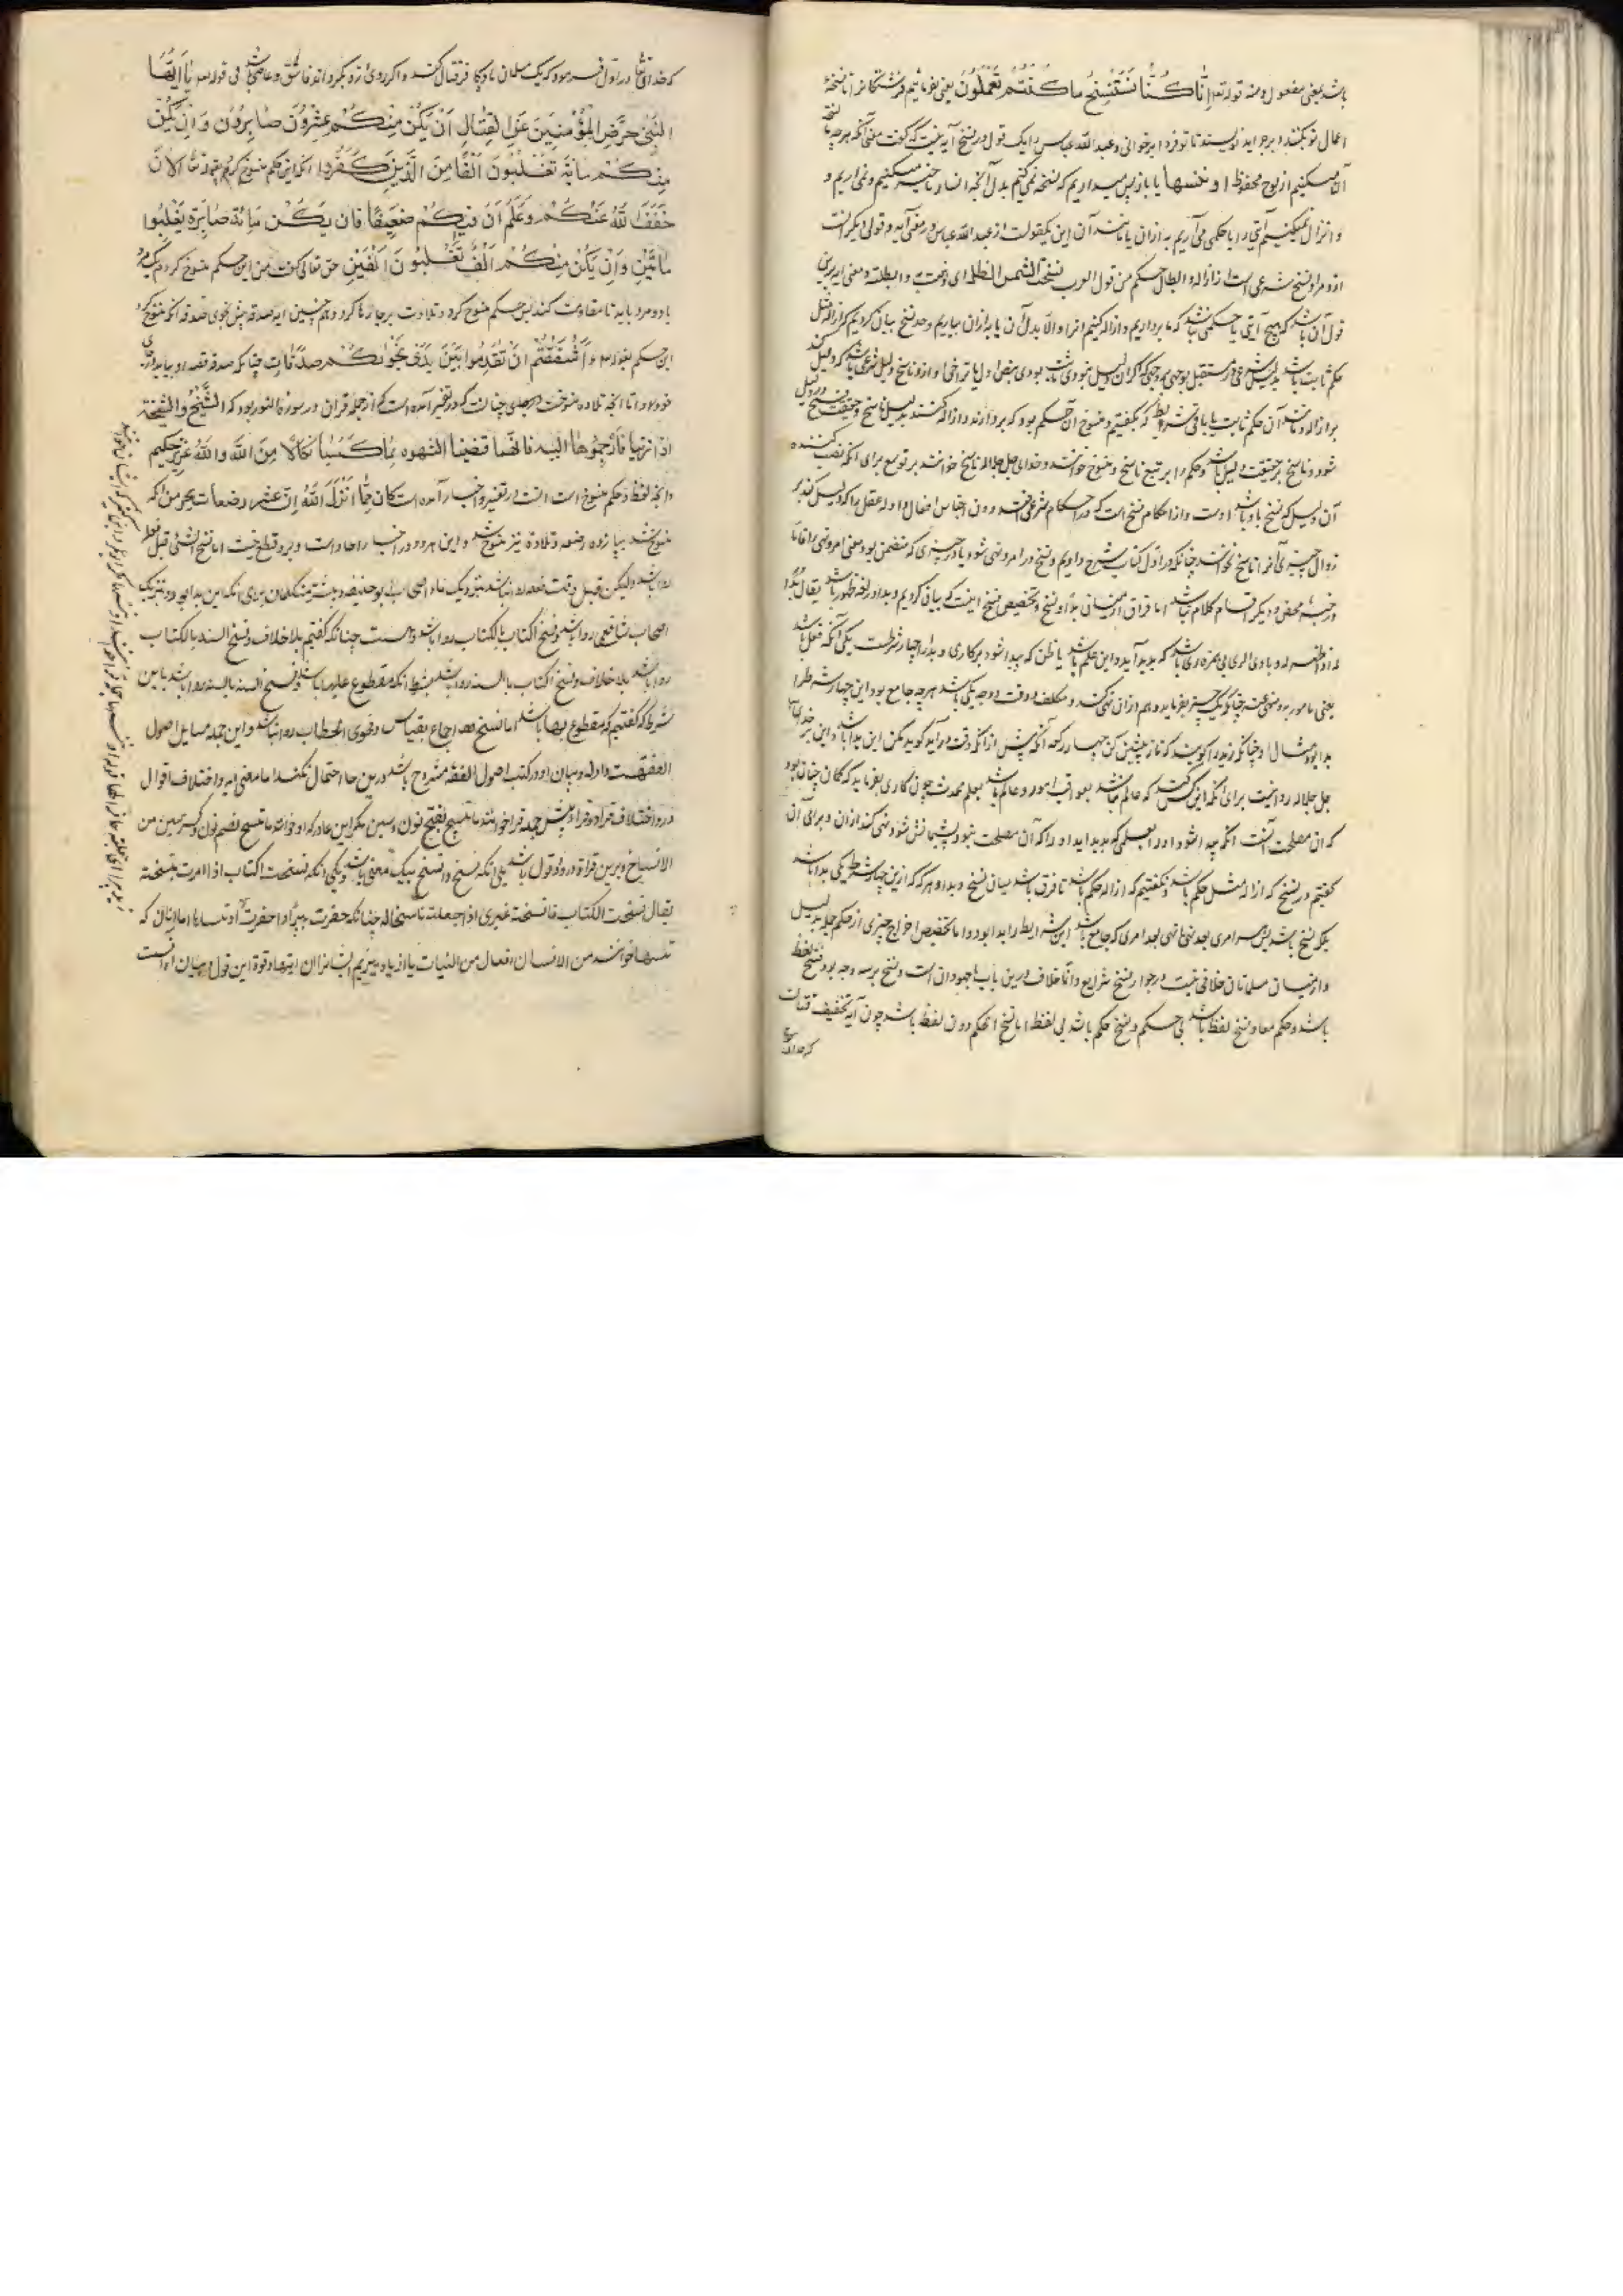 باشد بمعنی مفعول و منه قوله تعالی اِنَّا كُنَّا نَسْتَنْسِخُ مَا كُنْتُمْ تَعْمَلُونَ یعنی بفرمائیم فرشتگانرا تا نسخۀ
اعمال تو بکنند و بر جراید نویسند تا تو فردا برخوانی و عبد الله عباس را یک قول در نسخ آیه اینست که گفت معنی آنکه هر چه ما نسخت
القا میکنیم از لوح محفوظ او ننسها یا باز پس میداریم که نسخه نمی کنیم بدل آنچه
و انزال نمیکنیم آیتی را یا حکمی می آریم به ازان یا مانند آن این یکقولست از عبد الله عباس در معنی آیه و قولی دیگر آنست
ازو مراد نسخ شرعی است از ازاله و ابطال حکم من قول العرب نسخت الشمس الظل ای اذهبته و ابطلته و معنی آیه برین
قول آن باشد که هیچ آیتی یا حکمی نباشد که ما برداریم و ازاله کنیم آنرا و الا بدل آن یا به ازان بیاریم و حد نسخ بیان کردیم که ازاله مثل
حکم ثابت باشد بدلیل شرعی در مستقبل بر وجهی که اگر آن دلیل نبودی ثابت بودی بنص اول با تراخی او ازو و ناسخ دلیل شرعی باشد که دلیل کند
بر ازاله مانند آن حکم ثابت با باقی شرایط که بگفتیم و منسوخ آن حکم بود که بردارند و ازاله کنند بدلیل ناسخ و حقیقت نسخ در دلیل
شود و ناسخ بر حقیقت دلیل باشد و حکم را بر تبع ناسخ و منسوخ خوانند و خدای جل جلاله ناسخ خوانند بر توسع برای آنکه نصب کننده
آن دلیل که نسخ باو باشد اوست و از احکام نسخ است که در احکام شرعی افتد دون اجناس افعال و ادله عقل را که دلیل کند بر
زوال چیزی آنرا ناسخ نخوانند چنانکه در اول کتاب شرح دادیم و نسخ در امر و نهی شود یا در چیزی که متضمن بود معنی امر و نهی را فاما
در خبر محض و دیگر اقسام کلام نباشد اما فرق از میان بدا و نسخ و تخصیص نسخ اینست که بیان کردیم و بدا در لغت ظهور باشد یقال بدا
له اذا ظهر له و بادی الرای بی همزه رای باشد که پدید آید و این علم باشد یا ظن که پیدا شود بر کاری و بدا را چهار شرطست یکی آنکه فعل باشد
یعنی مامور به و منهی عنه چنانکه یک چیز بفرماید و هم ازان نهی کند و مکلف و وقت و وجه یکی باشد هر چه جامع بود این چهار شرط را
بدا بود مثال او چنانکه زید را گویند که نماز پیشین کن چهار رکعه آنکه پیش از آنکه وقت درآید گوید مکن این بدا باشد و این بر خدای
جل جلاله روا نیست برای آنکه این کس کند که عالم نباشد بعواقب امور و عالم باشد بعلم محدث چون کاری بفرماید که گمان چنان بود
که آن مصلحت آنست آنکه پیدا شود او را بعلمی که پدید آید او را که آن مصلحت نبود پشیمان شود و نهی کند ازان و برای آن
گفتیم در نسخ که ازاله مثل حکم باشد و نگفتیم که ازاله حکم باشد تا فرق باشد میان نسخ و بدا و هر که که ازین چهار شرط یکی بدا باشد
بلکه نسخ باشد پس هر امری بعد نهی یا نهی بعد امری که جامع باشد این شرایط را بدا بود و اما تخصیص اخراج چیزی از حکم جمله بدلیل
و از میان مسلمانان خلافی نیست در جواز نسخ شرایع و انما خلاف درین باب با جهودان است و نسخ بر سه وجه بود نسخ لفظ
باشد و حکم معا و نسخ لفظ باشد بی حکم و نسخ حکم باشد بی لفظ اما نسخ الحکم دون لفظ باشد چون آیه تخفیف قتال
که خدای تعالی
که خدای تعالی در اول فرموده که یک مسلمان با ده کافر قتال کند و اگر روی ازو بگرداند فاسق و عاصی باشد فی قوله تعالی یَا اَیُّهَا
النَّبِیُّ حَرِّضِ الْمُؤْمِنِینَ عَلَی الْقِتَالِ اِنْ یَکُنْ مِنْکُمْ عِشْرُونَ صَابِرُونَ وَ اِنْ یَکُنْ
مِنْکُمْ مِائَةٌ یَغْلِبُونَ اَلْفًا مِنَ الَّذِینَ کَفَرُوا آنکه این حکم منسوخ کرد بقوله تعالی اَلْآنَ
خَفَّفَ اللّٰهُ عَنْکُمْ وَ عَلِمَ اَنَّ فِیکُمْ ضَعِیفًا فَاِنْ یَکُنْ مِائَةٌ صَابِرَةٌ یَغْلِبُوا
مِائَتَیْنِ وَ اِنْ یَکُنْ مِنْکُمْ اَلْفٌ یَغْلِبُونَ اَلْفَیْنِ حق تعالی گفت من این حکم منسوخ کردم یک مرد
با دو مرد باید تا مقاومت کند پس حکم منسوخ کرد و تلاوت بر جا رها کرد و هم چنین ایه صدقه پیش نجوی صدقه آنکه منسوخ کرد
این حکم بقوله ءَاَشْفَقْتُمْ اَنْ تُقَدِّمُوا بَیْنَ یَدَیْ نَجْوٰیکُمْ صَدَقَاتٍ چنانکه صدق قصه او بیاید
و اما آنچه تلاوه منسوخست چنانست که در تفسیر آمده است که از جمله قران در سورة النور بود که الشَّیْخُ وَ الشَّیْخَة
اذا زنیا فَارْجُمُوهُمَا البته فانهما قضیا الشهوه بِمَا کَسَبَا نَکَالًا مِنَ اللّٰهِ وَ اللّٰهُ عَزِیزٌ حَکِیمٌ
و آنچه لفظ و حکم منسوخ است آنست در تفسیر و اخبار آمده است کَانَ مِمَّا اَنْزَلَ اللّٰهُ اِنَّ عَشْرَ رضعات یحرمن آنکه
منسوخ شد بپانزده رضعه و تلاوة نیز منسوخ شد و این هر دو در اخبار احاد است و برو قطع نیست اما نسخ الشیء قبل فعله
روا باشد ولیکن قبل وقت فعله روا نباشد بنزدیک ما و اصحاب بوحنیفه و بیشتر متکلمان برای آنکه این بدا بود و بنزدیک
اصحاب شافعی روا باشد و نسخ الکتاب بالکتاب روا باشد و هست چنانکه گفتیم بلا خلاف و نسخ السنه بالکتاب
روا باشد بلا خلاف و نسخ الکتاب بالسنه روا باشد بشرط آنکه مقطوع علیها باشد و نسخ السنه بالسنه روا باشد باین
شرط که گفتیم که مقطوع بها باشد اما نسخ اجماع بقیاس و فحوی الخطاب روا نباشد و این جمله مسایل اصول
الفقهست و ادله و بیان او در کتب اصول الفقه مشروح باشد درین جا احتمال نکند اما معنی ایه و اختلاف اقوال
درو و اختلاف قراءة و قراء پیش جمله قرا خوانند ما ننسخ بفتح نون و سین مگر ابن عامر که او خواند ما ننسخ بضم نون و کسر سین من
الانساخ و برین قراءة درو دو قول باشد یکی آنکه نسخ و انسخ بیک معنی باشد و یکی آنکه نسخت الکتاب اذا امرت بنسخه
یقال نسخت الکتاب فانسخته غیری اذا جعلته ناسخا له چنانکه حفرت بیرا و احفرت
ننسها خوانند من الانسان افعال من النسیان